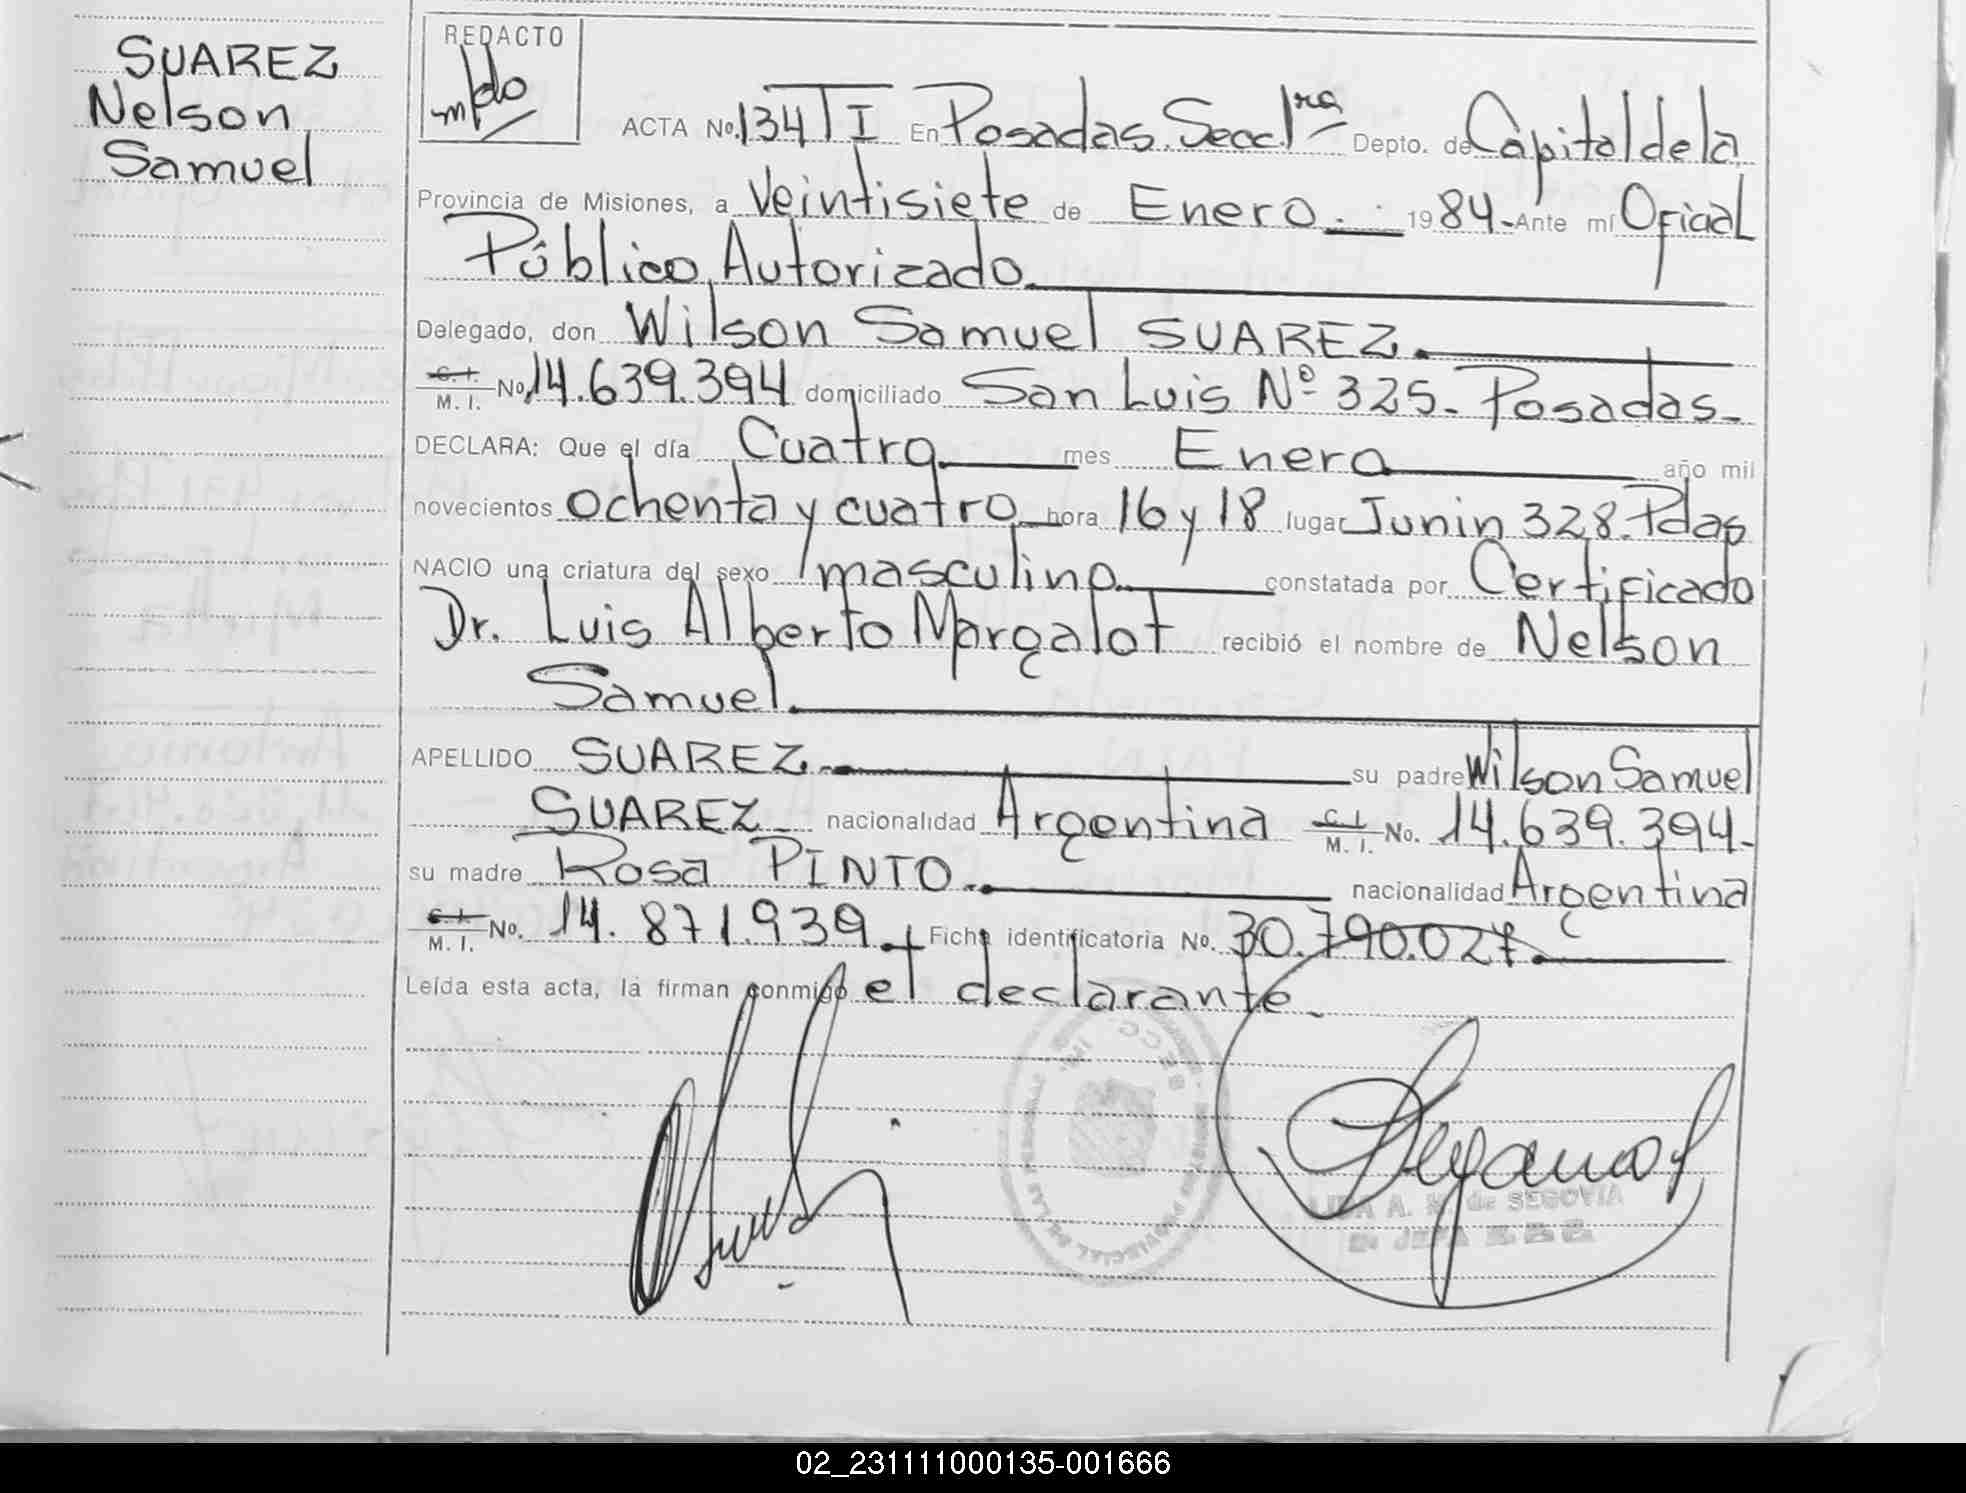 SUAREZ
Nelson
Samuel
REDACTO
ACTA No. 134 T I En Posadas. Secc. 1ra Depto. de Capital de la
Provincia de Misiones, a Veintisiete de Enero. 1984.- Ante mí Oficial
Público Autorizado.
Delegado, don Wilson Samuel SUAREZ.
C. I.
M. I. No. 14.639.394 domiciliado San Luis Nº 325.- Posadas.-
DECLARA: Que el día Cuatro mes Enero año mil
novecientos ochenta y cuatro hora 16 y 18 lugar Junin 328. Pdas
NACIO una criatura del sexo masculino. constatada por Certificado
Dr. Luis Alberto Margalot recibió el nombre de Nelson
Samuel.
APELLIDO SUAREZ. su padre Wilson Samuel
SUAREZ nacionalidad Argentina C. I.
M. I. No. 14.639.394.-
su madre Rosa PINTO. nacionalidad Argentina
C. I.
M. I. No. 14.871.939 Ficha identificatoria No. 30.790.027.
Leída esta acta, la firman conmigo el declarante.
de SEGOVIA
JEFA
02_231111000135-001666